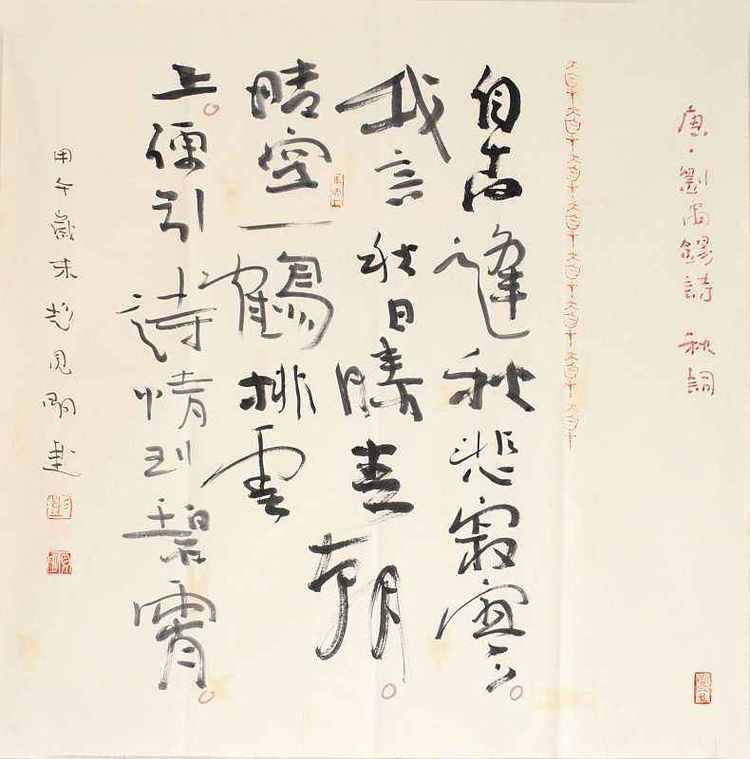 唐·劉禹錫詩 秋詞
自古逢秋悲寂寥。
我言秋日勝春朝。
晴空一鶴排雲
上。便引詩情到碧霄。
甲午歲末彭見明書